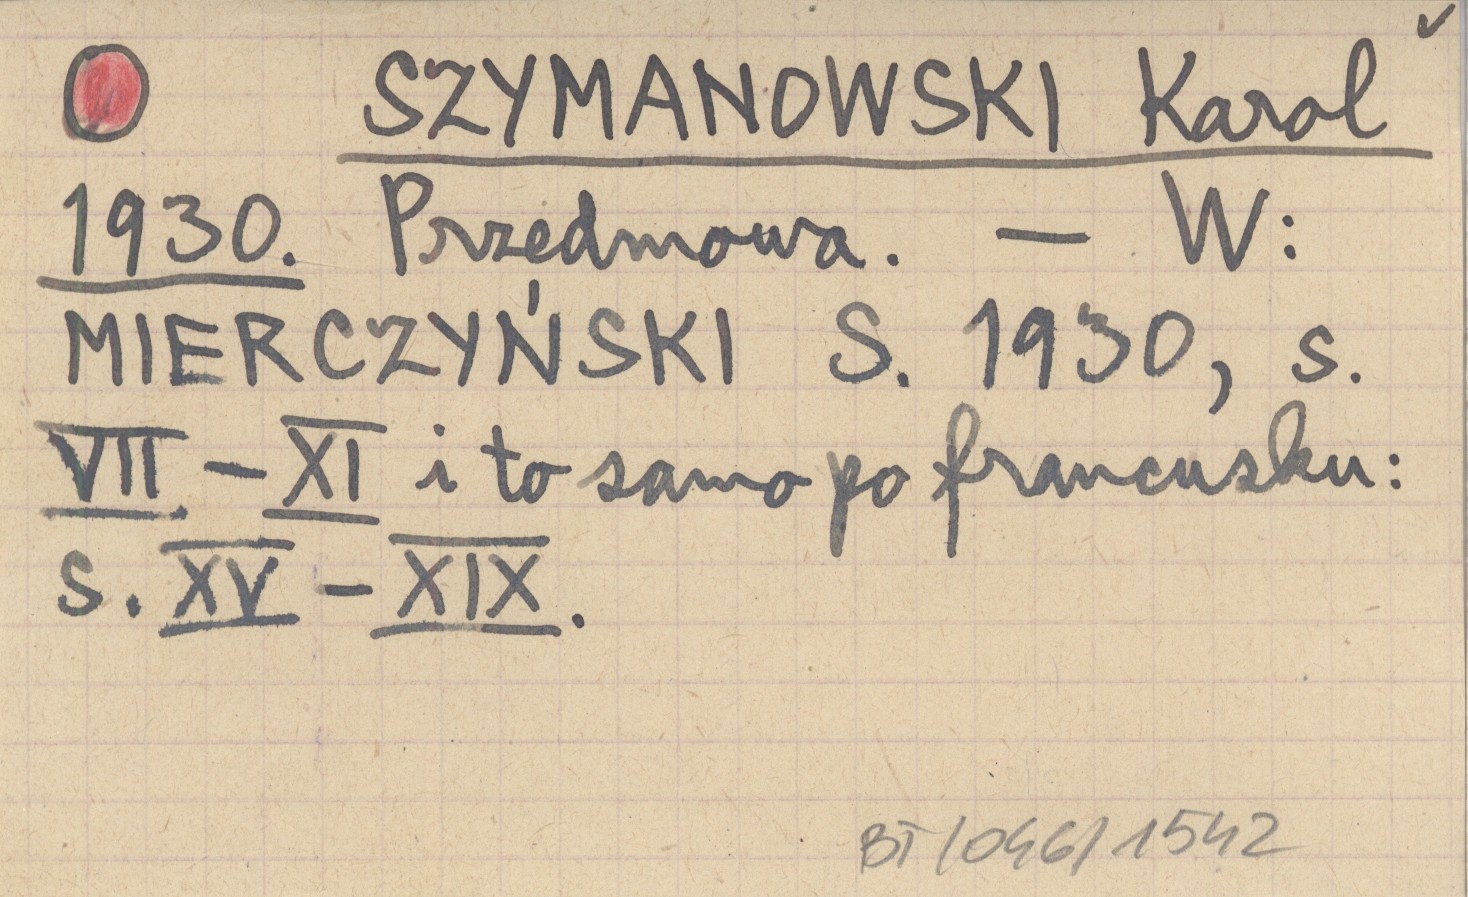 SZYMANOWSKI Karol
1930. Przedmowa. — W:
MIERCZYŃSKI S. 1930, s.
VII – XI i to samo po francusku:
s. XV – XIX.
BT/046/1542